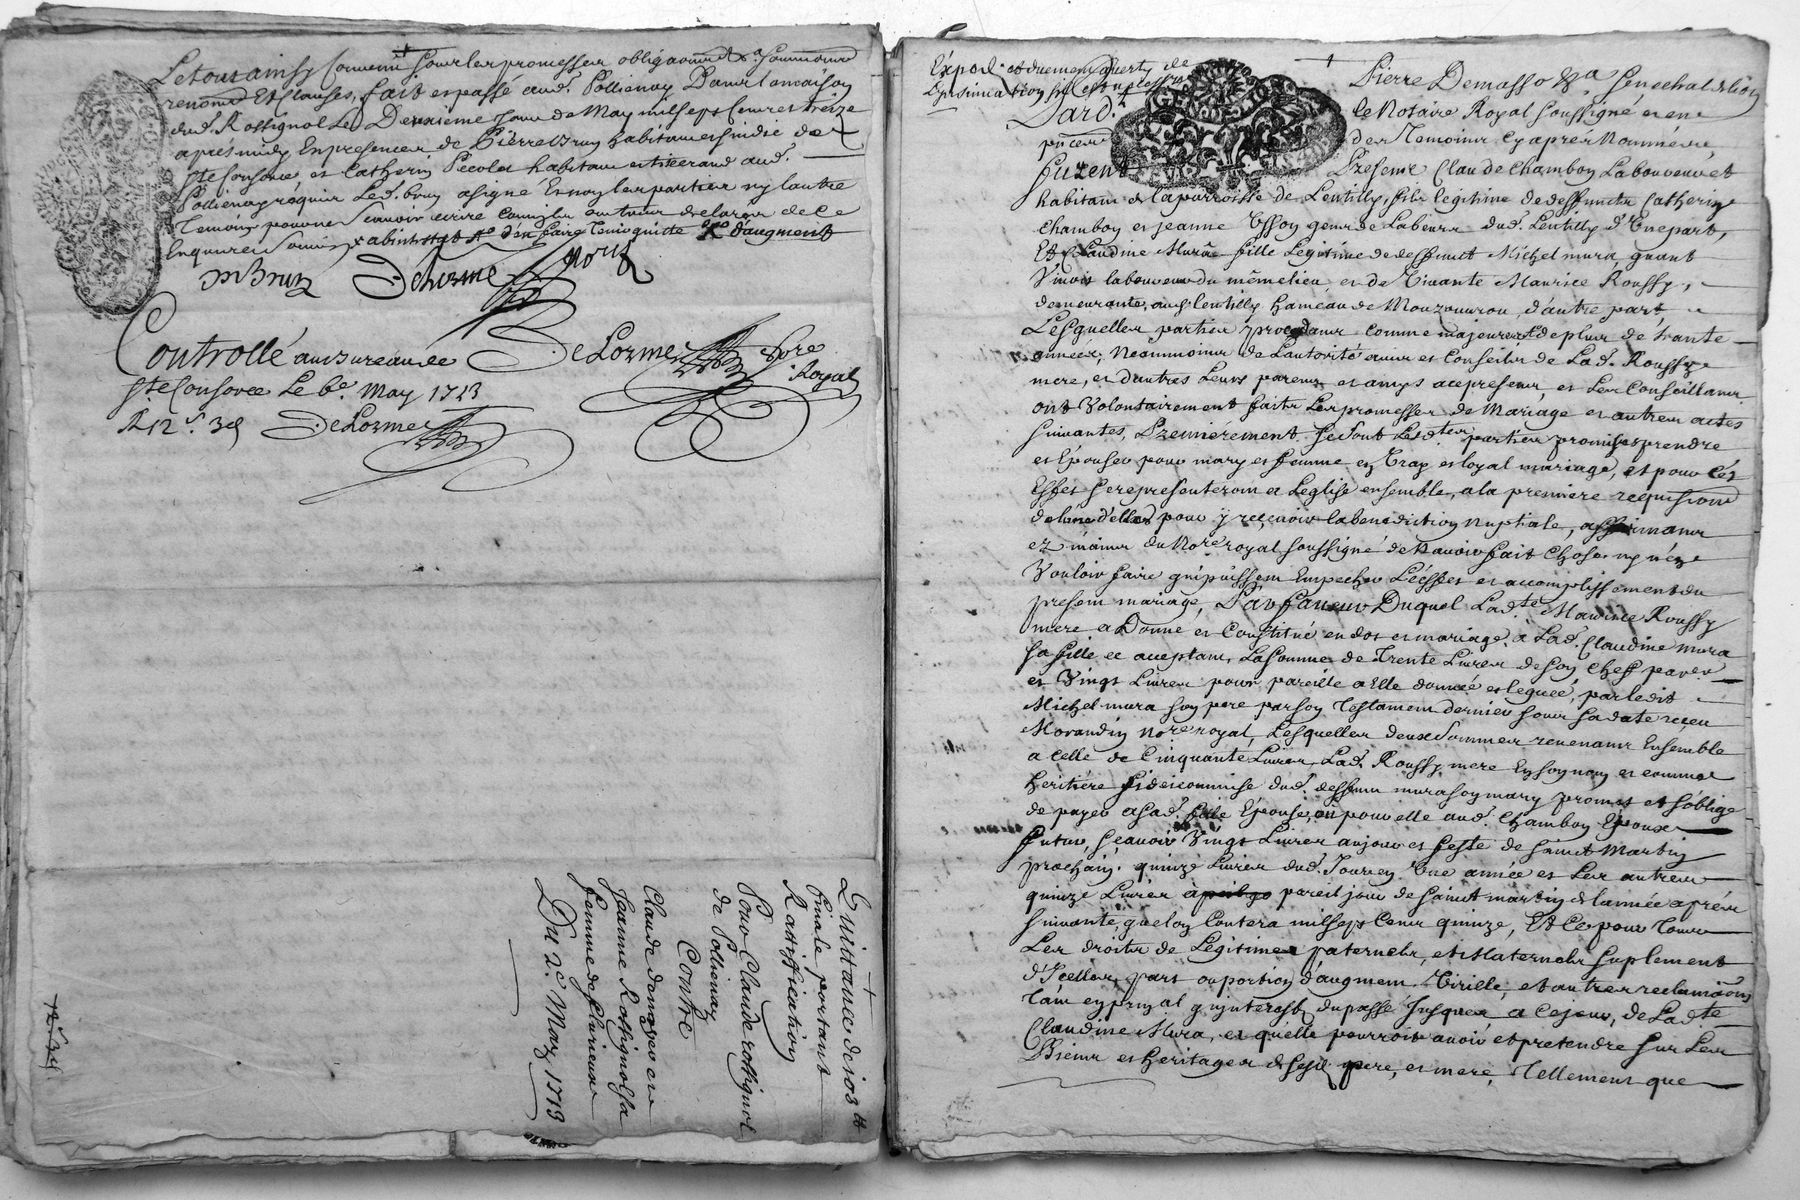 Le tout ainsy Convenu sous les promesses obligaõns &a. soumissions
renonõns Et Clauses, fait et passé aud. Pollienay Dans la maison
dud. Rossignol Le Deuxieme Jour de May mil sept Cent et treize
apres midy En presence de Pierre Brun habitant et sindic de
Ste Consorce et Catherin habitant et tisserand aud.
Pollienay requis Led. brun a signé Et non les parties ny l'autre
Temoin pour ne scavoir ecrire comme ils ont tous declaré de ce
Enquis et sommés
M Brun Delorme
Controllé au Bureau de
Ste Consorce Le 6e. May 1713
R 12 s. 3 d DeLorme
DeLorme No.re
Royal
Quittance de 103 lt
finale portant
Rattiffication
Pour Claude rossignol
de Pollienay
Contre
Claude demogeo et
Jeanne Rossignol sa
femme de Clurieux
Du 2e. May 1713
12 s. 3 d
Pierre Demasso &a. Senechal de Lion
Pard.t le Notaire Royal soussigné et en
des Temoins Cy apres Nommés,
furent Presens Claude Chambon Laboureur et
habitant de la parroisse de Lentilly, fils legitime de deffuncts Catherin
Chambon et jeanne Esson gens de Labeur dud. Lentilly d'Une part,
Et Claudine Mura fille Legitime de deffunct Michel mura, quant
Vivoit laboureur du même lieu, et de Vivante Maurice Roussy,
demeurante aud. lentilly hameau de Mouzourou, d'autre part,
Lesquelles parties procedant comme majeures de plus de trante
années, Neammoins de L'autorité avis et Conseils de Lad. Roussy
mere, et d'autres Leurs parens et amys acepresens, et Les Conseillans
ont Volontairement faits Les promesses de Mariage et autres actes
suivantes, Premièrement Se sont Lesd.tes parties promises prendre
et Epouser pour mary et femme en Vray et loyal mariage, et pour Cet
Effet se representeront a Leglise ensemble, a la premiere requisition
de lune d'elles pour y reçevoir la benediction nuptiale, affirmans
ez mains du Nore royal soussigné de N'avoir fait Chose ny n'en
Vouloir faire qui puissent Empecher L'éffet et accomplissement du
present mariage, En faveur Duquel Lad.te Maurice Roussy
mere a Donné et Constitué en dot et mariage à Lad. Claudine Mura
sa fille ce aceptant, La Somme de Trente Livres de son Cheff
et Vingt Livres pour pareille a Elle donnée et leguée, par ledit
Michel mura son pere par son Testament dernier sous sa date receu
Morandin Nore royal, Lesquelles deux Sommes revenant Ensemble
a Celle de Cinquante Livres, Lad. Roussy mere En son nom et comme
heritière fideicommise dud. deffunt mura son mary promet et s'oblige
de payer a Sad. fille Epouse, ou pour elle aud. Chambon Epoux
futur, sçavoir Vingt Livres au jour et feste de saint Martin
prochain, quinze Livres dud. Jour en Une année et Les autres
quinze Livres a pareil jour de saint martin de l'année aprés
suivante, que lon Contera mil sept Cent quinze, Et Ce pour Tous
Les droits de Legitimes paternels, et Maternels suplement
d'Icelles, part ou portion d'augment Virille, et autres reclamãons
Tant en prin.al qu'interest du passé Jusques a Ce jour, de Lad.te
Claudine Mura, et qu'elle pourroit avoir et pretendre sur Les
Biens et heritages de sesd. pere, et mere, Tellement que